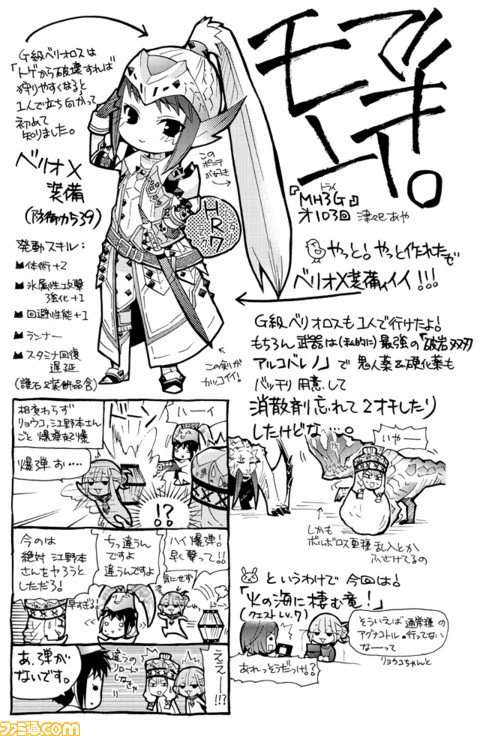 マンキツ
モーエー。
『MH3G』
とつにゅう
オ103回 津々巳あや
G級ベリオロスは
「トゲから破壊すれば
狩りやすくなる」と
1人で立ち向かって
初めて
知りました。
ベリオX
装備
(防御力539)
発動スキル:
体術+2
氷属性攻撃
強化+1
回避性能+1
ランナー
スタミナ回復
遅延
(護石&装飾品含)
この
ポニテ
が好き
HR7
この剣が
カッコイイ!
やっと!やっと作れたぜ
ベリオX装備ィイイ!!!
G級ベリオロスも1人で行けたよ!
もちろん武器は(私的に)最強の「破岩双刃
アルコバレノ」で鬼人薬&硬化薬も
バッチリ用意して
消散剤忘れて2オチしたり
したけどな…。
いやー
しかも
ボルボロス亜種乱入とか
ふざけてるの
というわけで今回は!
「火の海に棲む竜!」
(クエストLv.7)
そういえば通常種の
アグナコトル行ってない
なーって
リョウコちゃんと
あれっそうだっけ?
相変わらず
リョウコ、江野本さん
ごと爆弾起爆
ハーイ
爆弾お…
!?
ハイ爆弾!
早く撃って!!
気にせず
ちっ違うんですよ
違うんですよ
早すぎる!
今のは
絶対江野本
さんをヤろうと
しただろ!
ドーン
ええーー!!?
違うの
リロード
しなきゃ
あ、弾が
ないです。
ファミ通.com